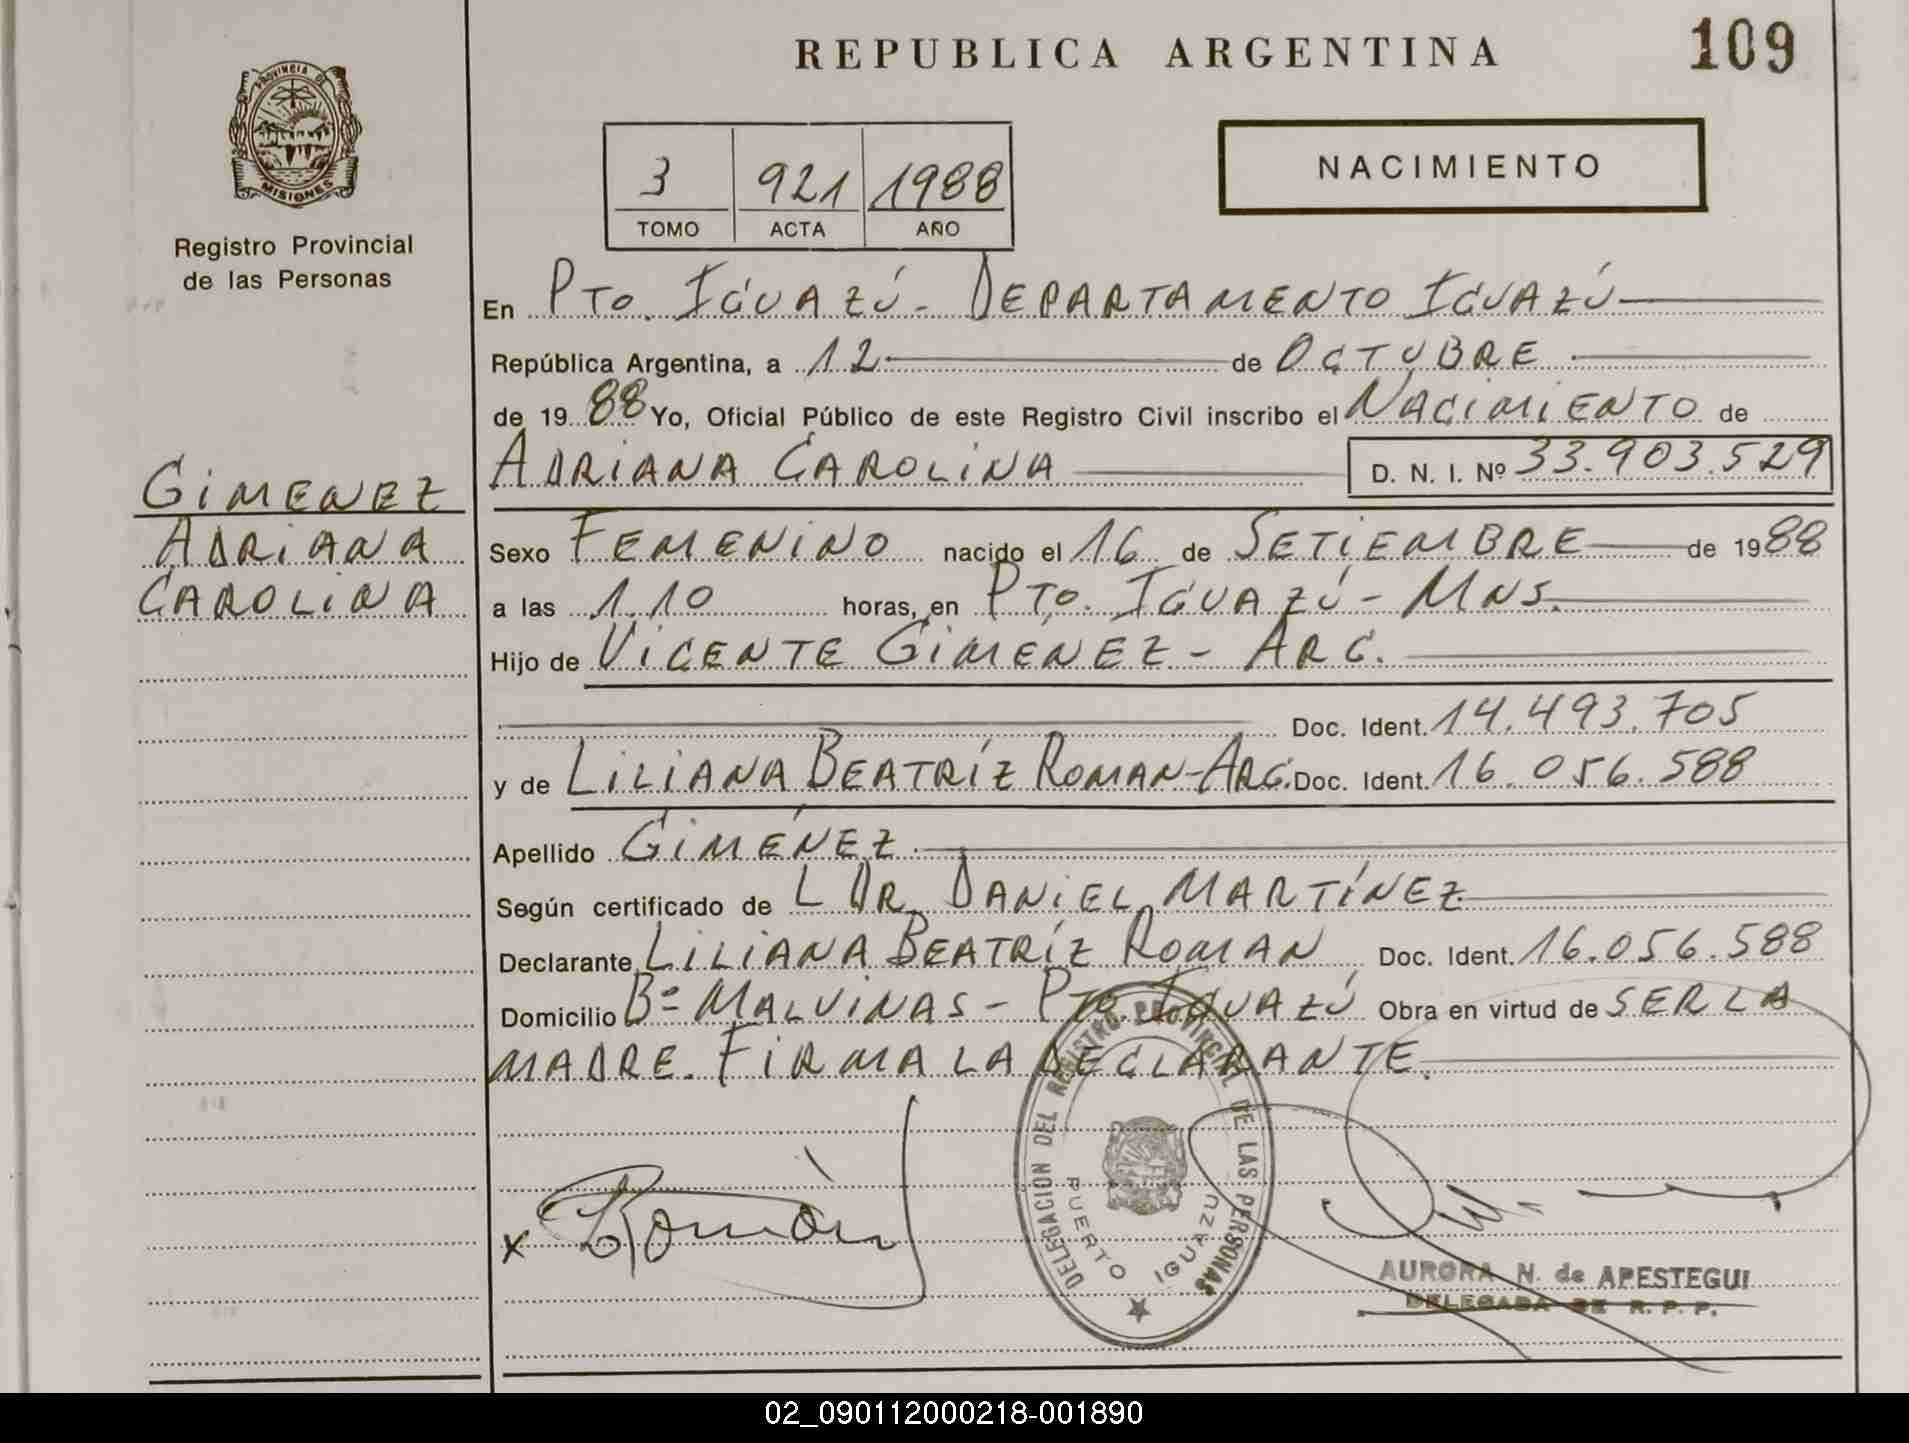 REPUBLICA ARGENTINA
109
PROVINCIA DE
MISIONES
Registro Provincial
de las Personas
3 921 1988
TOMO ACTA AÑO
NACIMIENTO
En PTO. IGUAZÚ - DEPARTAMENTO IGUAZÚ
República Argentina, a 12 de OCTUBRE
de 19 88 Yo, Oficial Público de este Registro Civil inscribo el NACIMIENTO de
ADRIANA CAROLINA D. N. I. Nº 33.903.529
GIMENEZ
ADRIANA
CAROLINA
Sexo FEMENINO nacido el 16 de SETIEMBRE de 1988
a las 1.10 horas, en PTO. IGUAZÚ - MNS.
Hijo de VICENTE GIMÉNEZ - ARG.
Doc. Ident. 14.493.705
y de LILIANA BEATRÍZ ROMAN - ARG. Doc. Ident. 16.056.588
Apellido GIMÉNEZ
Según certificado de L DR. DANIEL MARTÍNEZ
Declarante LILIANA BEATRÍZ ROMAN Doc. Ident. 16.056.588
Domicilio Bº MALVINAS - PTO. IGUAZÚ Obra en virtud de SER LA
MADRE. FIRMA LA DECLARANTE.
DELEGACION DEL REGISTRO PROVINCIAL DE LAS PERSONAS
PUERTO IGUAZU
x Román
AURORA N. de APESTEGUI
DELEGADA DE R. P. P.
02_090112000218-001890